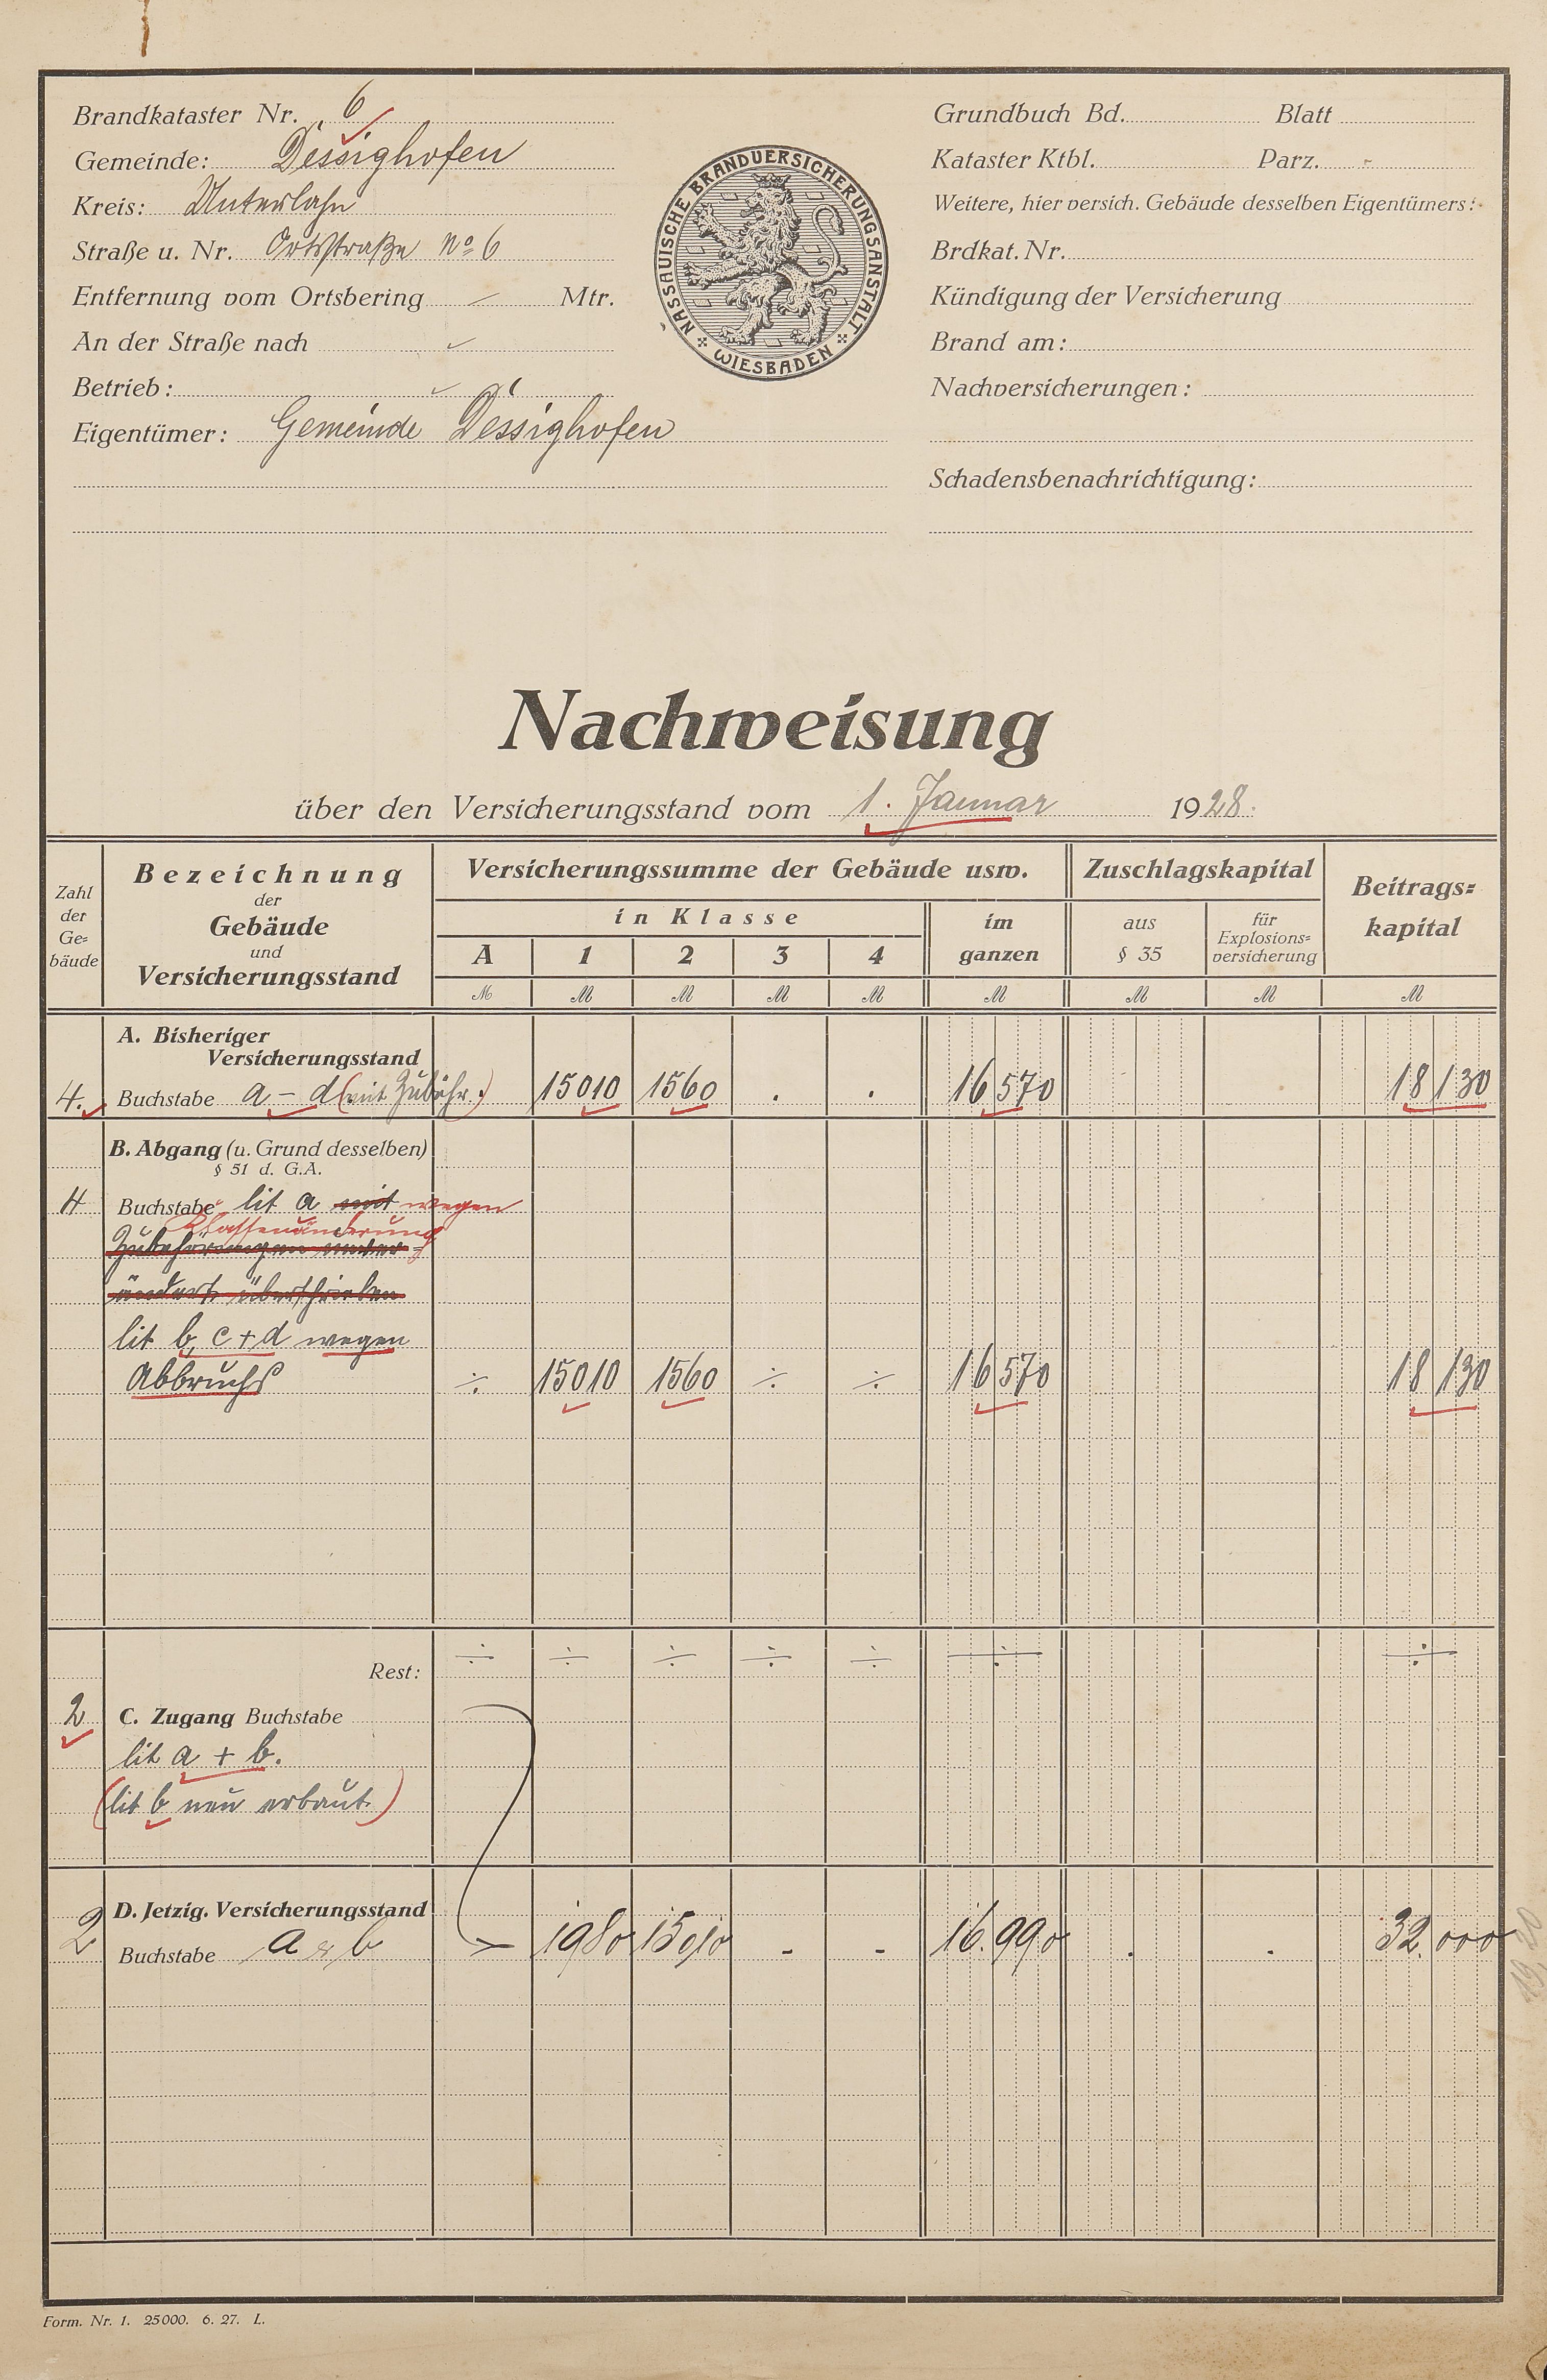 Brandkataster Nr. 6
Gemeinde: Dessighofen
Kreis: Unterlahn
Straße u. Nr. Ortsstraße No 6
Entfernung vom Ortsbering — Mtr.
An der Straße nach
Betrieb:
Eigentümer: Gemeinde Dessighofen
NASSAUISCHE BRANDVERSICHERUNGSANSTALT
WIESBADEN
Grundbuch Bd. Blatt
Kataster Ktbl. Parz. -
Weitere, hier versich. Gebäude desselben Eigentümers:
Brdkat. Nr.
Kündigung der Versicherung
Brand am:
Nachversicherungen:
Schadensbenachrichtigung:
Nachweisung
über den Versicherungsstand vom 1. Januar 1928.
Zahl der Ge= bäude
Bezeichnung
der
Gebäude
und
Versicherungsstand
Versicherungssumme der Gebäude usw.
in Klasse
A 1 2 3 4
im ganzen
Zuschlagskapital
aus § 35
für Explosions= versicherung
Beitrags= kapital
M M M M M M M M M
A. Bisheriger
Versicherungsstand
4. Buchstabe a – d (mit Zubehr.) 15010 1560 . . 16 570 18 130
B. Abgang (u. Grund desselben)
§ 51 d. G.A.
4 Buchstabe lit a mit wegen
Klassenänderung
Zubehörungen unver=
ändert überschrieben
lit b, c + d wegen
Abbruchs ÷ 15010 1560 ÷ ÷ 16 570 18 130
Rest: ÷ ÷ ÷ ÷ ÷ ÷ ÷
2 C. Zugang Buchstabe
lit a + b.
(lit b neu erbaut.)
D. Jetzig. Versicherungsstand
2 Buchstabe a & b 1980 15010 - - 16.990 . . 32.000
Form. Nr. 1. 25000. 6. 27. L.